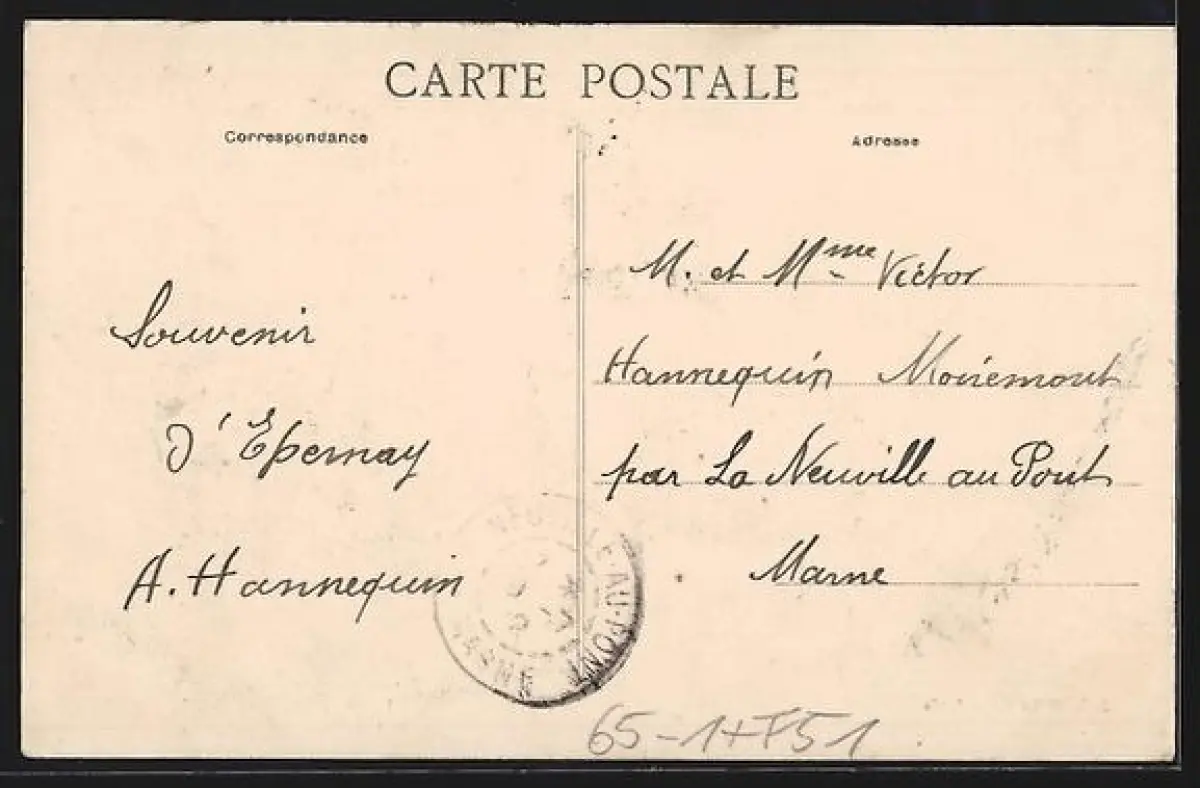 CARTE POSTALE
Correspondance
Adresse
Souvenir
d'Epernay
A. Hannequin
M. et Mme Victor
Hannequin Moiremont
par La Neuville au Pont
Marne
AU-PONT
65-1